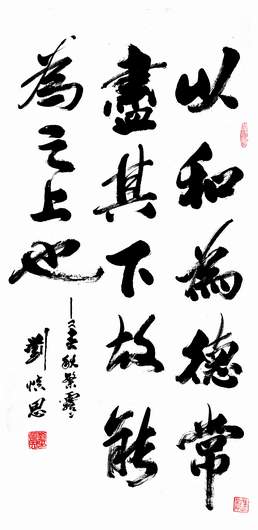 以和為德常
盡其下故能
為之上也
——春秋繁露
劉慎思